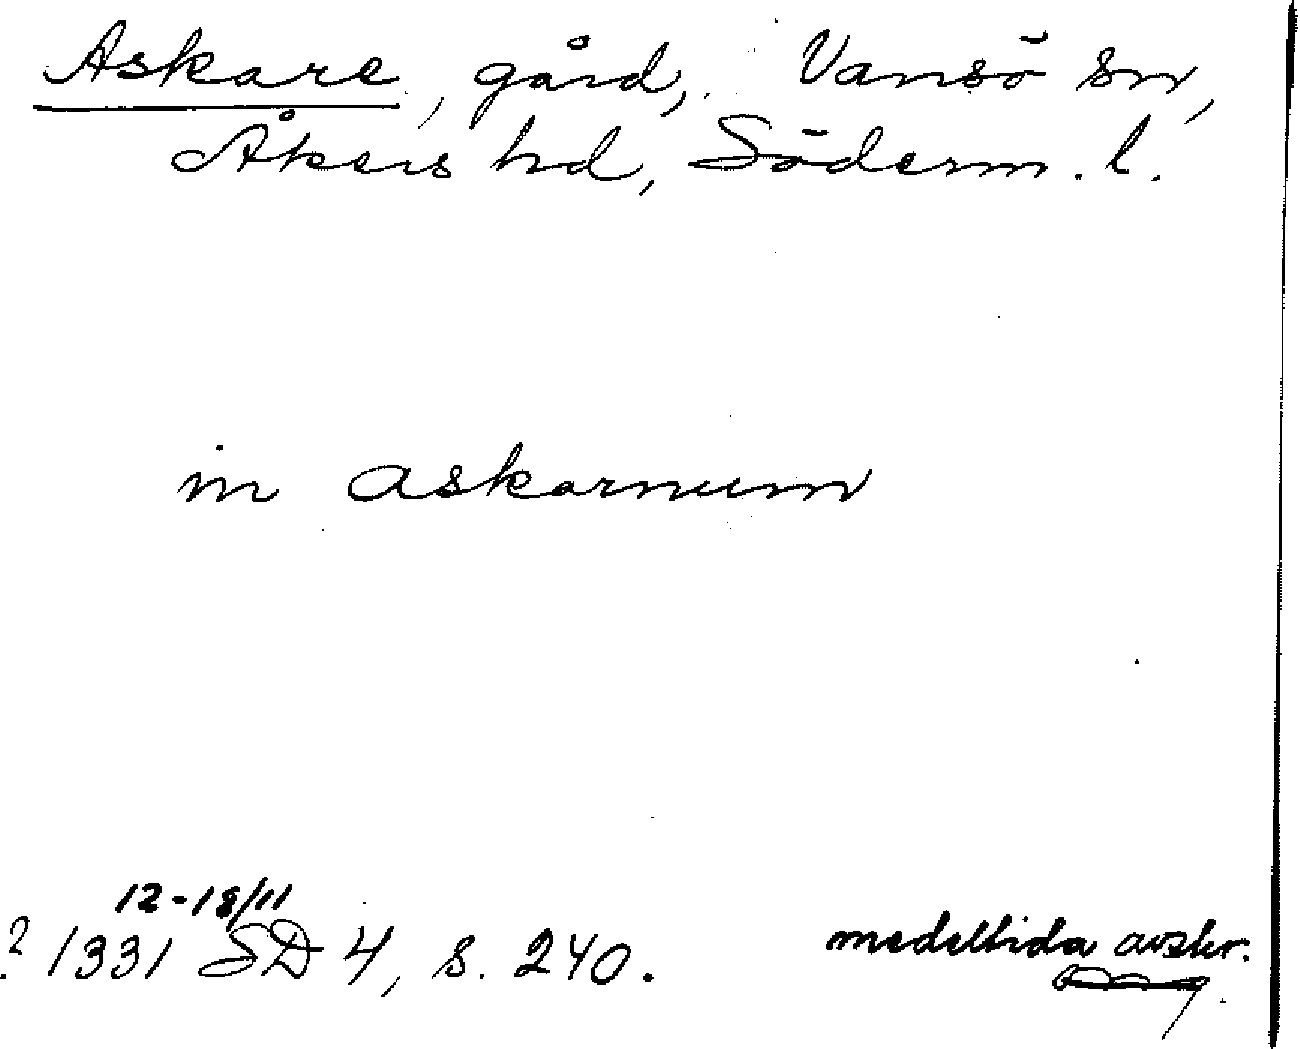 Askare, gård, Vansö sn,
Åkers hd, Söderm. l.
in askarnum
12-18/11
? 1331 SD 4, s. 240.
medeltida avskr.